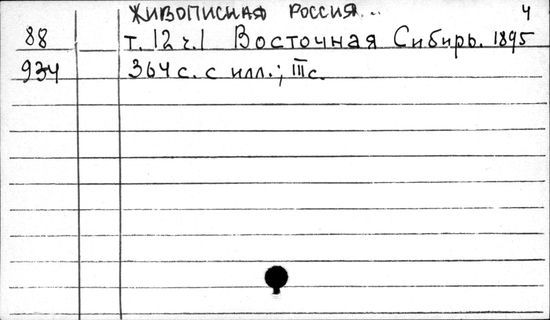 Живописная Россия... 4
88 т. 12 ч.1 Восточная Сибирь. 1895
934 364 с. с илл.; III с.